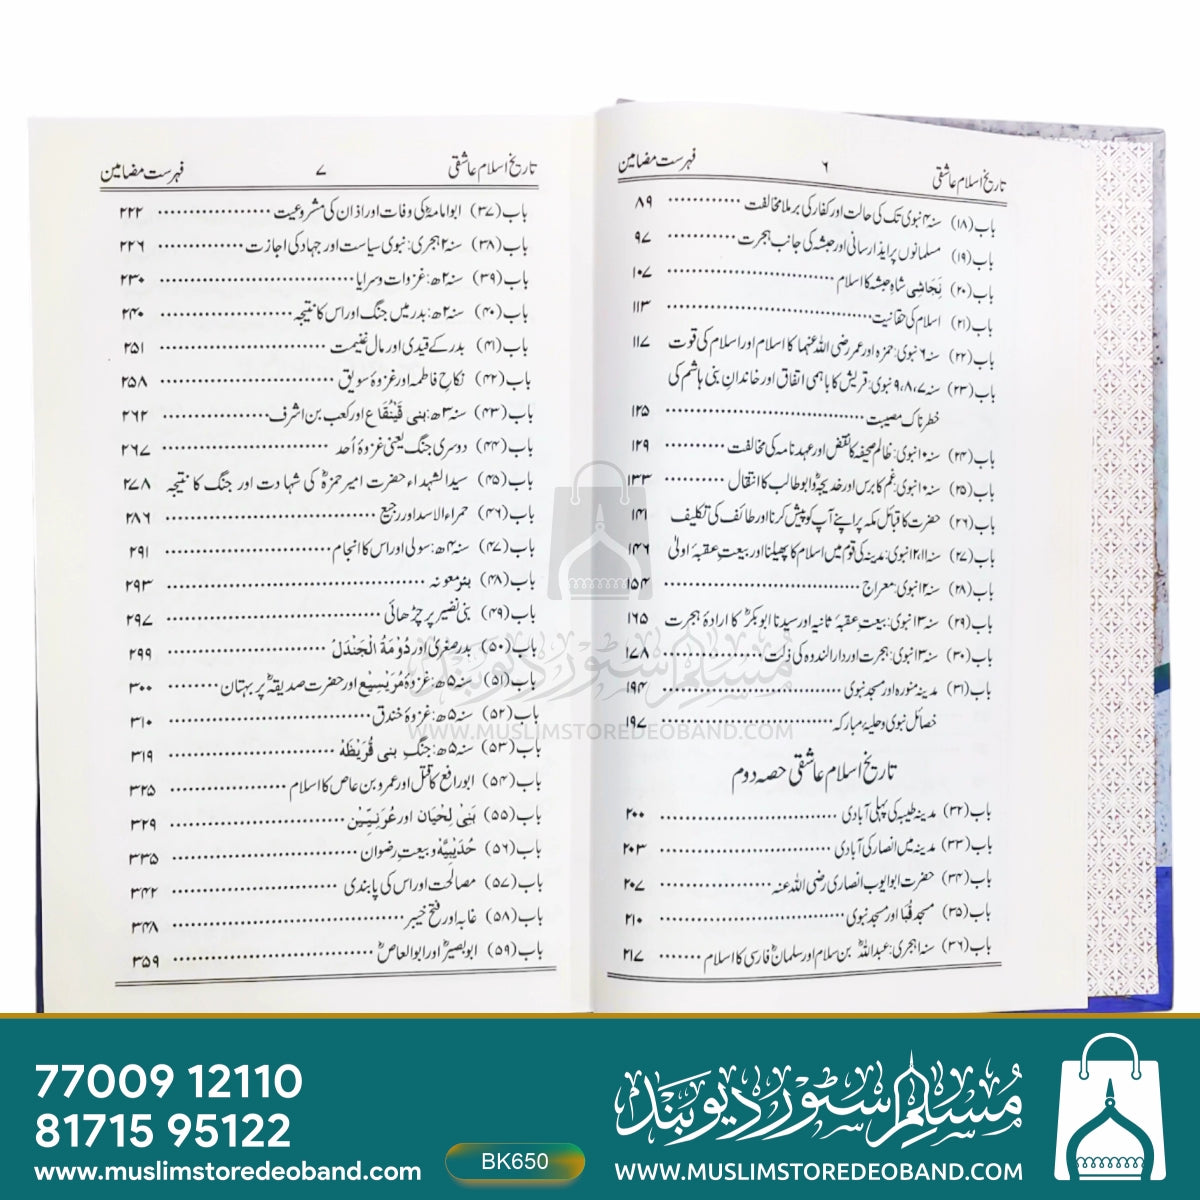 تاریخ اسلام عاشقی ۶ فہرست مضامین
باب (۱۸) سنہ ۴ نبوی تک کی حالت اور کفار کی برملا مخالفت ۸۹
باب (۱۹) مسلمانوں پر ایذا رسانی اور حبشہ کی جانب ہجرت ۹۷
باب (۲۰) نَجَاشِی شاہِ حبشہ کا اسلام ۱۰۷
باب (۲۱) اسلام کی حقانیت ۱۱۳
باب (۲۲) سنہ ۶ نبوی: حمزہ اور عمر رضی اللہ عنہما کا اسلام اور اسلام کی قوت ۱۱۷
باب (۲۳) سنہ ۷، ۸، ۹ نبوی: قریش کا باہمی اتفاق اور خاندانِ بنی ہاشم کی
خطرناک مصیبت ۱۲۵
باب (۲۴) سنہ ۱۰ نبوی: ظالم صحیفہ کا نقض اور عہد نامہ کی مخالفت ۱۲۹
باب (۲۵) سنہ ۱۰ نبوی: غم کا برس اور خدیجہؓ و ابو طالب کا انتقال ۱۳۳
باب (۲۶) حضرت کا قبائل مکہ پر اپنے آپ کو پیش کرنا اور طائف کی تکلیف ۱۴۱
باب (۲۷) سنہ ۱۱، ۱۲ نبوی: مدینہ کی قوم میں اسلام کا پھیلنا اور بیعتِ عقبۂ اولیٰ ۱۴۶
باب (۲۸) سنہ ۱۲ نبوی: معراج ۱۵۴
باب (۲۹) سنہ ۱۳ نبوی: بیعتِ عقبۂ ثانیہ اور سیدنا ابوبکرؓ کا ارادۂ ہجرت ۱۶۵
باب (۳۰) سنہ ۱۳ نبوی: ہجرت اور دار الندوہ کی ذلت ۱۷۸
باب (۳۱) مدینہ منورہ اور مسجد نبوی ۱۹۴
خصائل نبوی و حلیۂ مبارکہ ۱۹۷
تاریخ اسلام عاشقی حصہ دوم
باب (۳۲) مدینہ طیبہ کی پہلی آبادی ۲۰۰
باب (۳۳) مدینہ میں انصار کی آبادی ۲۰۳
باب (۳۴) حضرت ابو ایوب انصاری رضی اللہ عنہ ۲۰۷
باب (۳۵) مسجد قُبَا اور مسجد نبوی ۲۱۰
باب (۳۶) سنہ ۱ ہجری: عبد اللہؓ بن سلام اور سلمانؓ فارسی کا اسلام ۲۱۷
تاریخ اسلام عاشقی ۷ فہرست مضامین
باب (۳۷) ابو امامہؓ کی وفات اور اذان کی مشروعیت ۲۲۲
باب (۳۸) سنہ ۲ ہجری: نبوی سیاست اور جہاد کی اجازت ۲۲۶
باب (۳۹) سنہ ۲ھ: غزوات و سرایا ۲۳۰
باب (۴۰) سنہ ۲ھ: بدر میں جنگ اور اس کا نتیجہ ۲۴۰
باب (۴۱) بدر کے قیدی اور مال غنیمت ۲۵۱
باب (۴۲) نکاحِ فاطمہ اور غزوۂ سویق ۲۵۸
باب (۴۳) سنہ ۳ھ: بنی قَیْنُقَاع اور کعب بن اشرف ۲۶۲
باب (۴۴) دوسری جنگ یعنی غزوۂ اُحد ۲۶۷
باب (۴۵) سید الشہداء حضرت امیر حمزہؓ کی شہادت اور جنگ کا نتیجہ ۲۷۸
باب (۴۶) حمراء الاسد اور رجیع ۲۸۶
باب (۴۷) سنہ ۴ھ: سولی اور اس کا انجام ۲۹۱
باب (۴۸) بئر معونہ ۲۹۳
باب (۴۹) بنی نضیر پر چڑھائی ۲۹۷
باب (۵۰) بدر صغریٰ اور دُوْمَۃُ الْجَنْدَلْ ۲۹۹
باب (۵۱) سنہ ۵ھ: غزوۂ مُرَیْسِیْع اور حضرت صدیقہؓ پر بہتان ۳۰۰
باب (۵۲) سنہ ۵ھ: غزوۂ خندق ۳۱۰
باب (۵۳) سنہ ۵ھ: جنگِ بنی قُرَیْظَہْ ۳۱۹
باب (۵۴) ابو رافع کا قتل اور عمرو بن عاص کا اسلام ۳۲۵
باب (۵۵) بَنِیْ لِحْیَان اور عُرَنِیِّیْن ۳۲۹
باب (۵۶) حُدَیْبِیَّہ و بیعتِ رضوان ۳۳۵
باب (۵۷) مصالحت اور اس کی پابندی ۳۴۲
باب (۵۸) غابہ اور فتح خیبر ۳۴۸
باب (۵۹) ابو بصیرؓ اور ابو العاصؓ ۳۵۹
مسلم سٹور دیوبند
WWW.MUSLIMSTOREDEOBAND.COM
77009 12110
81715 95122
www.muslimstoredeoband.com
BK650
مُسلم سٹور دیوبند
WWW.MUSLIMSTOREDEOBAND.COM